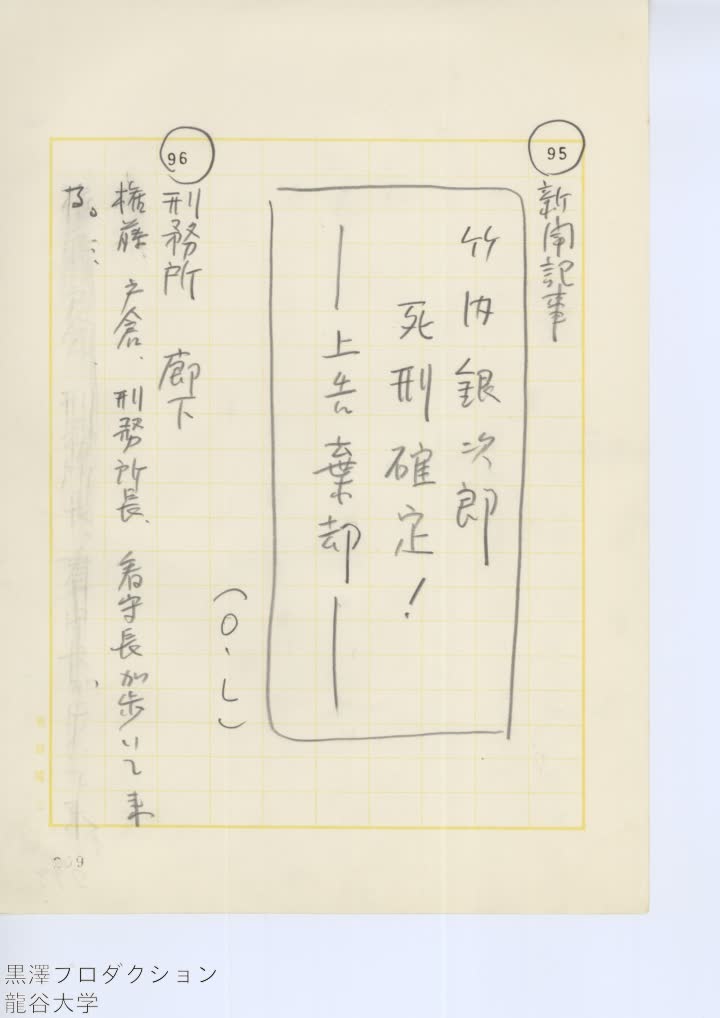 95
新聞記事
竹内銀次郎
死刑確定！
―上告棄却―
(O・L)
96
刑務所 廊下
権藤 戸倉、刑務所長、看守長が歩いて来
る。
209
黒澤プロダクション
龍谷大学